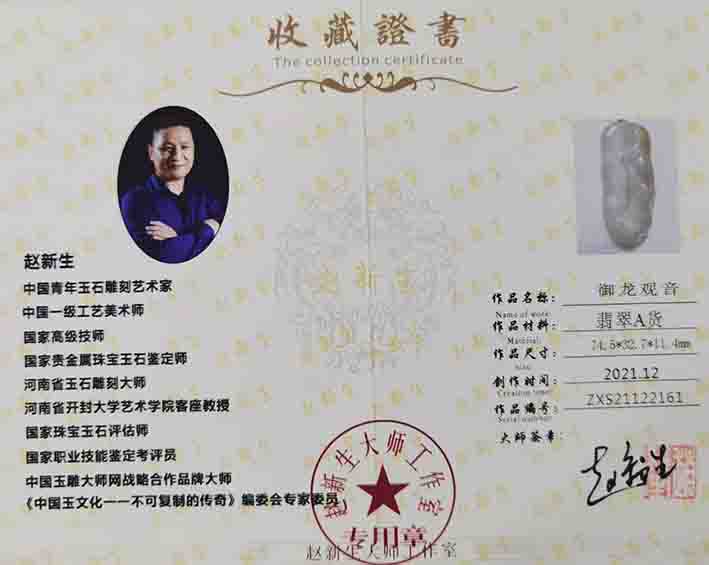 收藏證書
The collection certificate
赵新生
中国青年玉石雕刻艺术家
中国一级工艺美术师
国家高级技师
国家贵金属珠宝玉石鉴定师
河南省玉石雕刻大师
河南省开封大学艺术学院客座教授
国家珠宝玉石评估师
国家职业技能鉴定考评员
中国玉雕大师网战略合作品牌大师
《中国玉文化——不可复制的传奇》编委会专家委员
作品名称: 御龙观音
Name of work:
作品材料: 翡翠A货
Material:
作品尺寸: 74.5*32.7*11.4mm
size:
创作时间: 2021.12
Creation time:
作品编号: ZXS21122161
Serial number:
大师签章:
赵新生
赵新生大师工作室
专用章
赵新生大师工作室